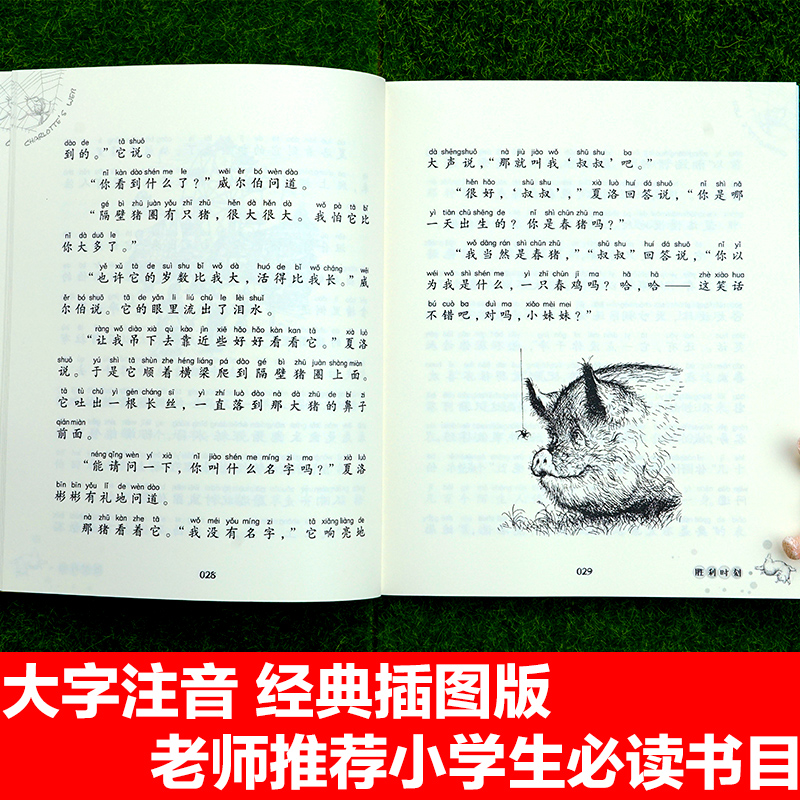 CHARLOTTE'S WEB
dào de tā shuō
到的。”它说。
nǐ kàn dào shén me le wēi ěr bó wèn dào
“你看到什么了？”威尔伯问道。
gé bì zhū juàn yǒu zhī zhū hěn dà hěn dà wǒ pà tā bǐ
“隔壁猪圈有只猪，很大很大。我怕它比
nǐ dà duō le
你大多了。”
yě xǔ tā de suì shu bǐ wǒ dà huó de bǐ wǒ cháng wēi
“也许它的岁数比我大，活得比我长。”威
ěr bó shuō tā de yǎn lǐ liú chū le lèi shuǐ
尔伯说。它的眼里流出了泪水。
ràng wǒ diào xià qù kào jìn xiē hǎo hǎo kàn kan tā xià luò
“让我吊下去靠近些好好看看它。”夏洛
shuō yú shì tā shùn zhe héng liáng pá dào gé bì zhū juàn shàng miàn
说。于是它顺着横梁爬到隔壁猪圈上面。
tā tǔ chū yì gēn cháng sī yì zhí luò dào nà dà zhū de bí zi
它吐出一根长丝，一直落到那大猪的鼻子
qián miàn
前面。
néng qǐng wèn yí xià nǐ jiào shén me míng zi ma xià luò
“能请问一下，你叫什么名字吗？”夏洛
bīn bīn yǒu lǐ de wèn dào
彬彬有礼地问道。
nà zhū kàn zhe tā wǒ méi yǒu míng zi tā xiǎng liàng de
那猪看着它。“我没有名字，”它响亮地
028
dà shēng shuō nà jiù jiào wǒ shū shu ba
大声说，“那就叫我‘叔叔’吧。”
hěn hǎo shū shu xià luò huí dá shuō nǐ shì nǎ
“很好，‘叔叔’，”夏洛回答说，“你是哪
yì tiān chū shēng de nǐ shì chūn zhū ma
一天出生的？你是春猪吗？”
wǒ dāng rán shì chūn zhū shū shu huí dá shuō nǐ yǐ
“我当然是春猪，”“叔叔”回答说，“你以
wéi wǒ shì shén me yì zhī chūn jī ma hā hā zhè xiào huà
为我是什么，一只春鸡吗？哈，哈——这笑话
bú cuò ba duì ma xiǎo mèi mei
不错吧，对吗，小妹妹？”
029
胜利时刻
大字注音 经典插图版
老师推荐小学生必读书目